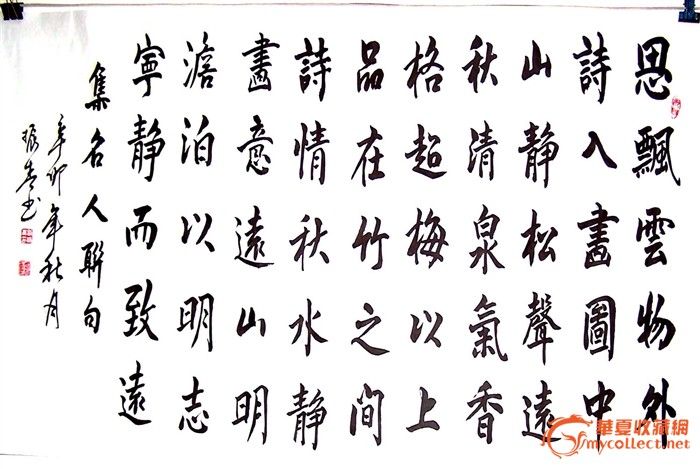 思飄雲物外
詩入畫圖中
山靜松聲遠
秋清泉氣香
格超梅以上
品在竹之間
詩情秋水靜
畫意遠山明
澹泊以明志
寧靜而致遠
集名人聯句
辛卯年秋月
書
華夏收藏網
mycollect.net